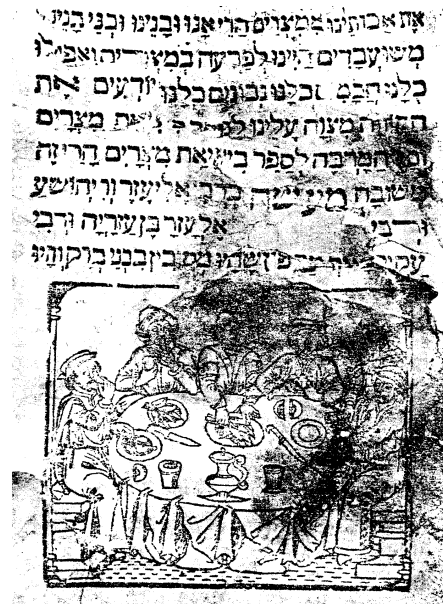 את אבותינו ממצרים הרי אנו ובנינו ובני בנינו
משועבדים היינו לפרעה במצרים ואפילו
כלנו כלנו נבונים כלנו יודעים את
מצוה עלינו לספר מצרים
המרבה לספר ביציאת מצרים הרי זה
משובח מעשה ברבי אליעזר ור׳ יהושע
ורבי אלעזר בן עזריה ורבי
בבני ברק והיו